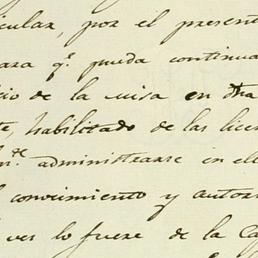 icular, por el present
para q.e pueda continua
cio de la misa en dha
te habilitado de las licen
m.te administrarse en ell
l conocimiento y autori
ver lo fuere de la Ca